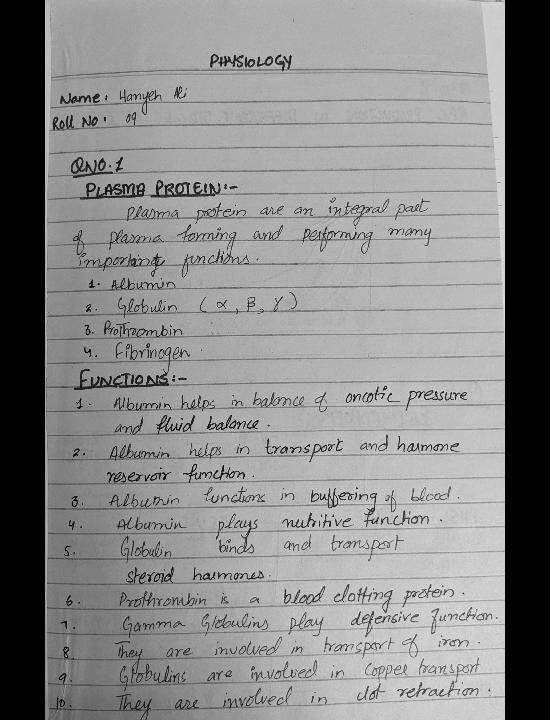 PHYSIOLOGY
Name: Haniyeh Ali
Roll No: 09
QNO.1
PLASMA PROTEIN:-
Plasma protein are an integral part
of plasma forming and performing many
important functions.
1. Albumin
2. Globulin (α, β, γ)
3. Prothrombin
4. Fibrinogen
FUNCTIONS:-
1. Albumin helps in balance of oncotic pressure
and fluid balance.
2. Albumin helps in transport and harmone
reservoir function.
3. Albumin functions in buffering of blood.
4. Albumin plays nutritive function.
5. Globulin binds and transport
steroid harmones.
6. Prothrombin is a blood clotting protein.
7. Gamma Globulins play defensive function.
8. They are involved in transport of iron.
9. Globulins are involved in Copper transport
10. They are involved in clot retraction.